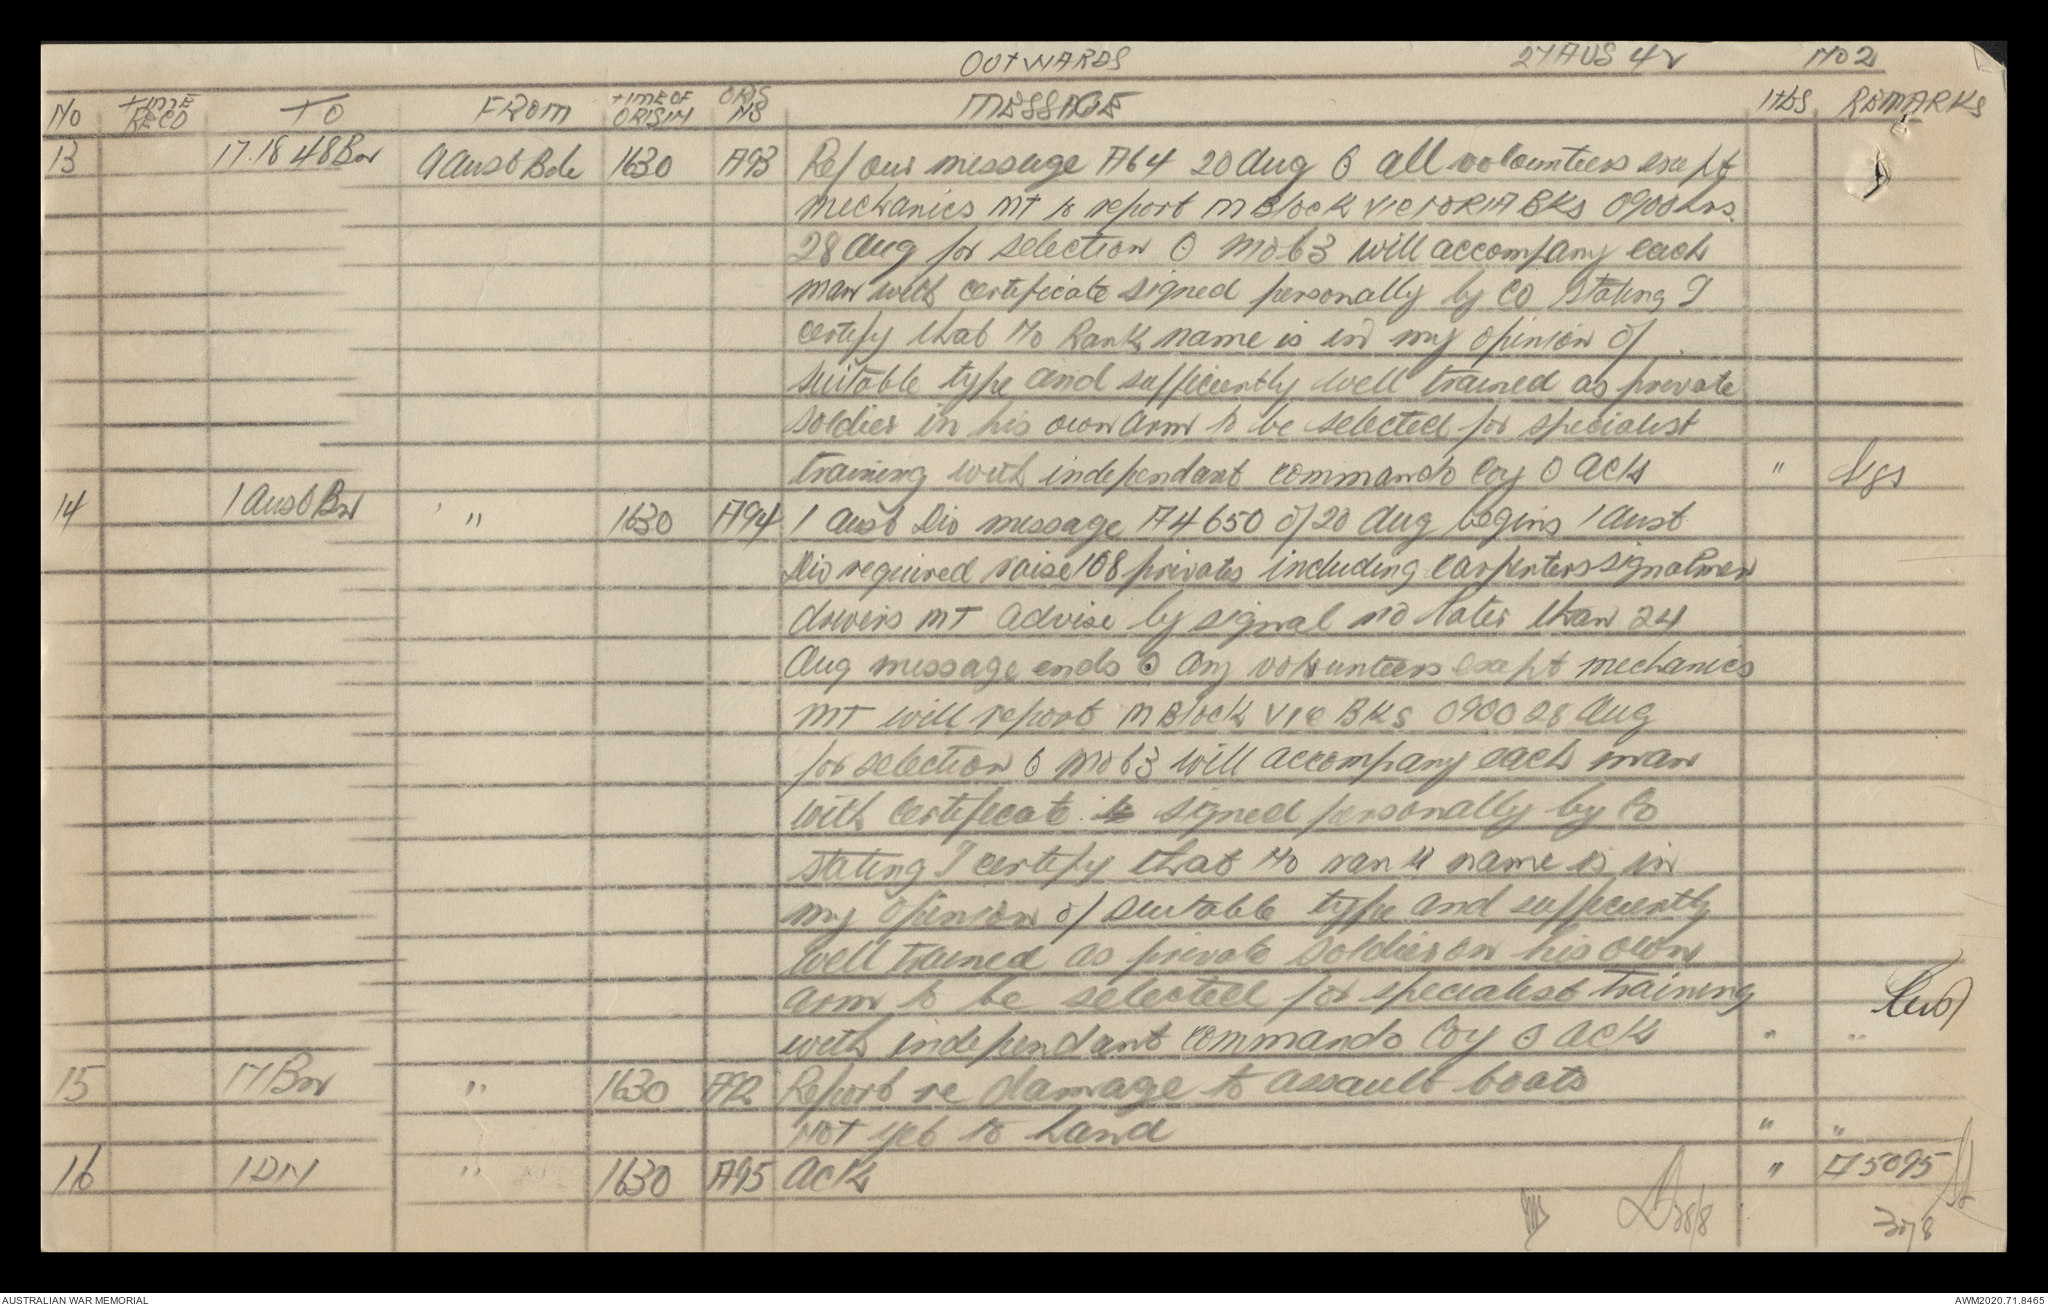 OUTWARDS 27 AUG 42 No 2
No TIME RECD TO FROM TIME OF ORIGIN ORIG No MESSAGE Itls REMARKS
13 17.18 48 Bn 9 Aust Bde 1630 A93 Ref our message A64 20 Aug O all volounteers exept
mechanics MT to report M Block VICTORIA BKs 0900 hrs.
28 Aug for selection O Mob3 will accompany each
man with certificate signed personally by CO stating I
certify that No Rank name is in my opinion of
suitable type and sufficiently well trained as private
soldier in his own arm to be selected for specialist
training with independant commando Coy O Ack " Sgs
14 1 Aust Bn " 1630 A94 1 Aust Div message A4650 of 20 Aug begins 1 Aust
Div required raise 108 privates including carpenters signalmen
drivers MT advise by signal no later than 24
Aug message ends O any volunteers exept mechanics
MT will report M Block VIC BKs 0900 28 Aug
for selection O Mob3 will accompany each man
with certificate signed personally by Co
stating I certify that No rank name is in
my opinion of suitable type and sufficiently
well trained as private soldier on his own
arm to be selected for specialist training
with independant commando Coy O Ack " "
15 17 Bn " 1630 A92 Report re damage to assault boats
not yet to hand " "
16 1 DN " 1630 A95 Ack " A5095
28/8
30/8
AUSTRALIAN WAR MEMORIAL AWM2020.71.8465